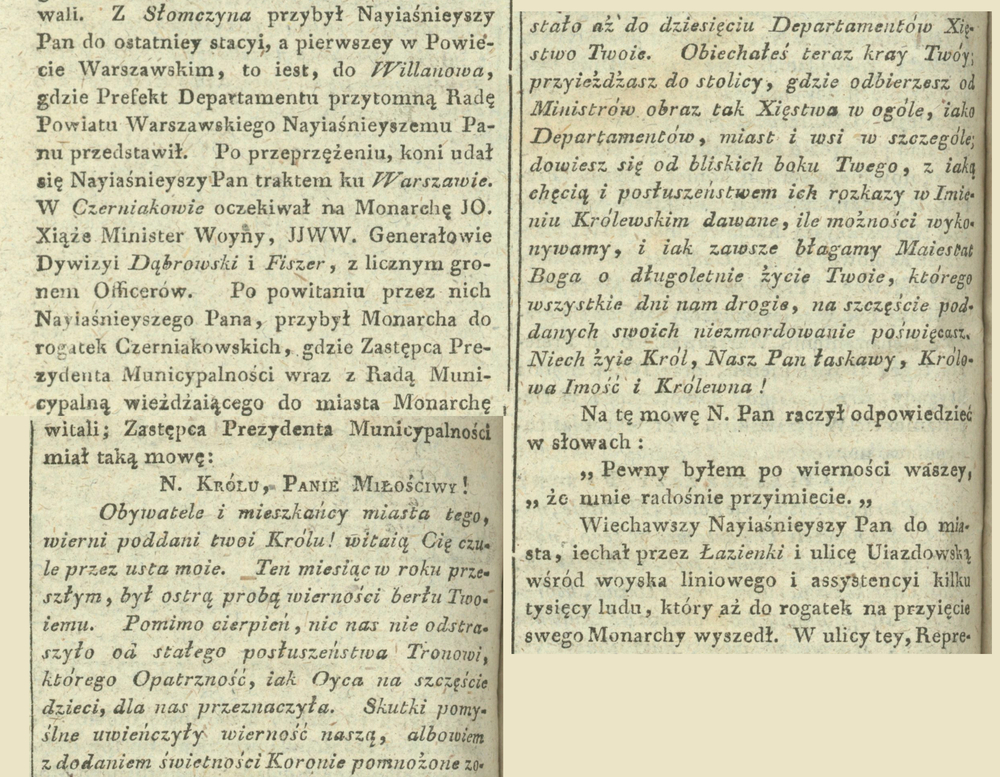 wali. Z Słomczyna przybył Nayiaśnieyszy
Pan do ostatniey stacyi, a pierwszey w Powie-
cie Warszawskim, to iest, do Willanowa,
gdzie Prefekt Departamentu przytomną Radę
Powiatu Warszawskiego Nayiaśnieyszemu Pa-
nu przedstawił. Po przeprzężeniu, koni udał
się Nayiaśnieyszy Pan traktem ku Warszawie.
W Czerniakowie oczekiwał na Monarchę JO.
Xiąże Minister Woyny, JJWW. Generałowie
Dywizyi Dąbrowski i Fiszer, z licznym gro-
nem Officerów. Po powitaniu przez nich
Nayiaśnieyszego Pana, przybył Monarcha do
rogatek Czerniakowskich, gdzie Zastępca Pre-
zydenta Municypalności wraz z Radą Muni-
cypalną wieżdżaiącego do miasta Monarchę
witali; Zastępca Prezydenta Municypalności
miał taką mowę:
N. Królu, Panie Miłościwy!
Obywatele i mieszkańcy miasta tego,
wierni poddani twoi Królu! witaią Cię czu-
le przez usta moie. Ten miesiąc w roku prze-
szłym, był ostrą probą wierności berłu Two-
iemu. Pomimo cierpień, nic nas nie odstra-
szyło od stałego posłuszeństwa Tronowi,
którego Opatrzność, iak Oyca na szczęście
dzieci, dla nas przeznaczyła. Skutki pomy-
ślne uwieńczyły wierność naszą, albowiem
z dodaniem świetności Koronie pomnożone zo-
stało aż do dziesięciu Departamentów Xię-
stwo Twoie. Obiechałeś teraz kray Twóy;
przyieżdżasz do stolicy, gdzie odbierzesz od
Ministrów obraz tak Xięstwa w ogóle, iako
Departamentów, miast i wsi w szczególe;
dowiesz się od bliskich boku Twego, z iaką
chęcią i posłuszeństwem ich rozkazy w Imie-
niu Królewskim dawane, ile możności wyko-
nywamy, i iak zawsze błagamy Maiestat
Boga o długoletnie życie Twoie, którego
wszystkie dni nam drogie, na szczęście pod-
danych swoich niezmordowanie poświęcasz.
Niech żyie Król, Nasz Pan łaskawy, Królo-
wa Imość i Królewna!
Na tę mowę N. Pan raczył odpowiedzieć
w słowach:
„ Pewny byłem po wierności waszey,
„ że mnie radośnie przyimiecie. „
Wiechawszy Nayiaśnieyszy Pan do mia-
sta, iechał przez Łazienki i ulicę Uiazdowską
wśród woyska liniowego i assystencyi kilku
tysięcy ludu, który aż do rogatek na przyięcie
swego Monarchy wyszedł. W ulicy tey, Repre-